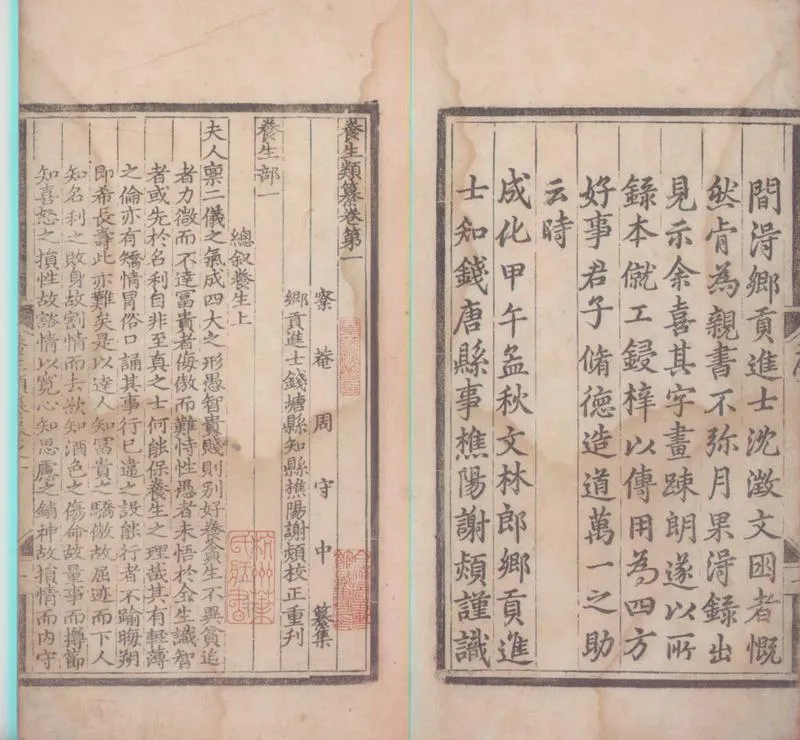 間淂鄉貢進士沈澂文囦者慨
然肯為親書不弥月果淂錄出
見示余喜其字畫踈朗遂以所
錄本僦工鋟梓以傳用為四方
好事君子脩德造道萬一之助
云時
成化甲午孟秋文林郎鄉貢進
士知錢唐縣事樵陽謝熲謹識
養生類纂卷第一
寮菴周守中 纂集
鄉貢進士錢塘縣知縣樵陽謝熲校正重刊
養生部一
總叙養生上
夫人禀二儀之氣成四大之形愚智貴賤則别好養貪生不異貧迫
者力微而不達冨貴者侮傲而難恃性愚者未悟於全生識智
者或先於名利自非至真之士何能保養生之理哉其有輕薄
之倫亦有矯情冐俗口誦其事行已違之設能行者不踰晦朔
即希長壽此亦難矣是以達人知富貴之驕傲故屈迹而下人
知名利之敗身故割情而去欲知酒色之傷命故量事而撙節
知喜怒之損性故豁情以寬心知思慮之銷神故損情而内守
杭州葉氏藏書